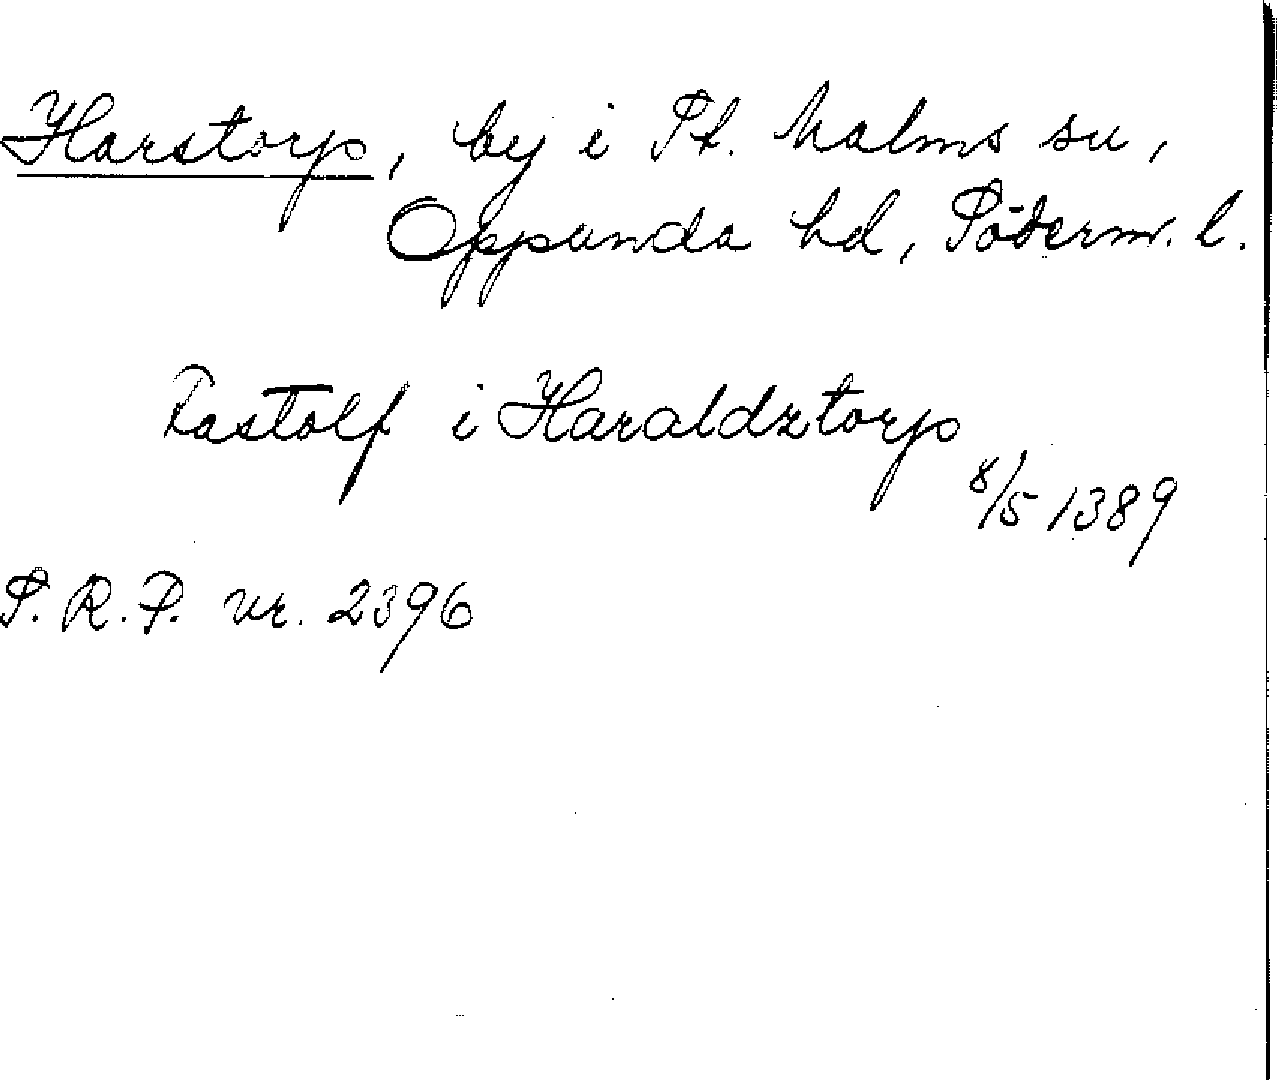 Harstorp, by i St. Malms sn,
Oppunda hd, Söderm. l.
Fastolf i Haraldztorp
8/5 1389
S.R.P. nr. 2396